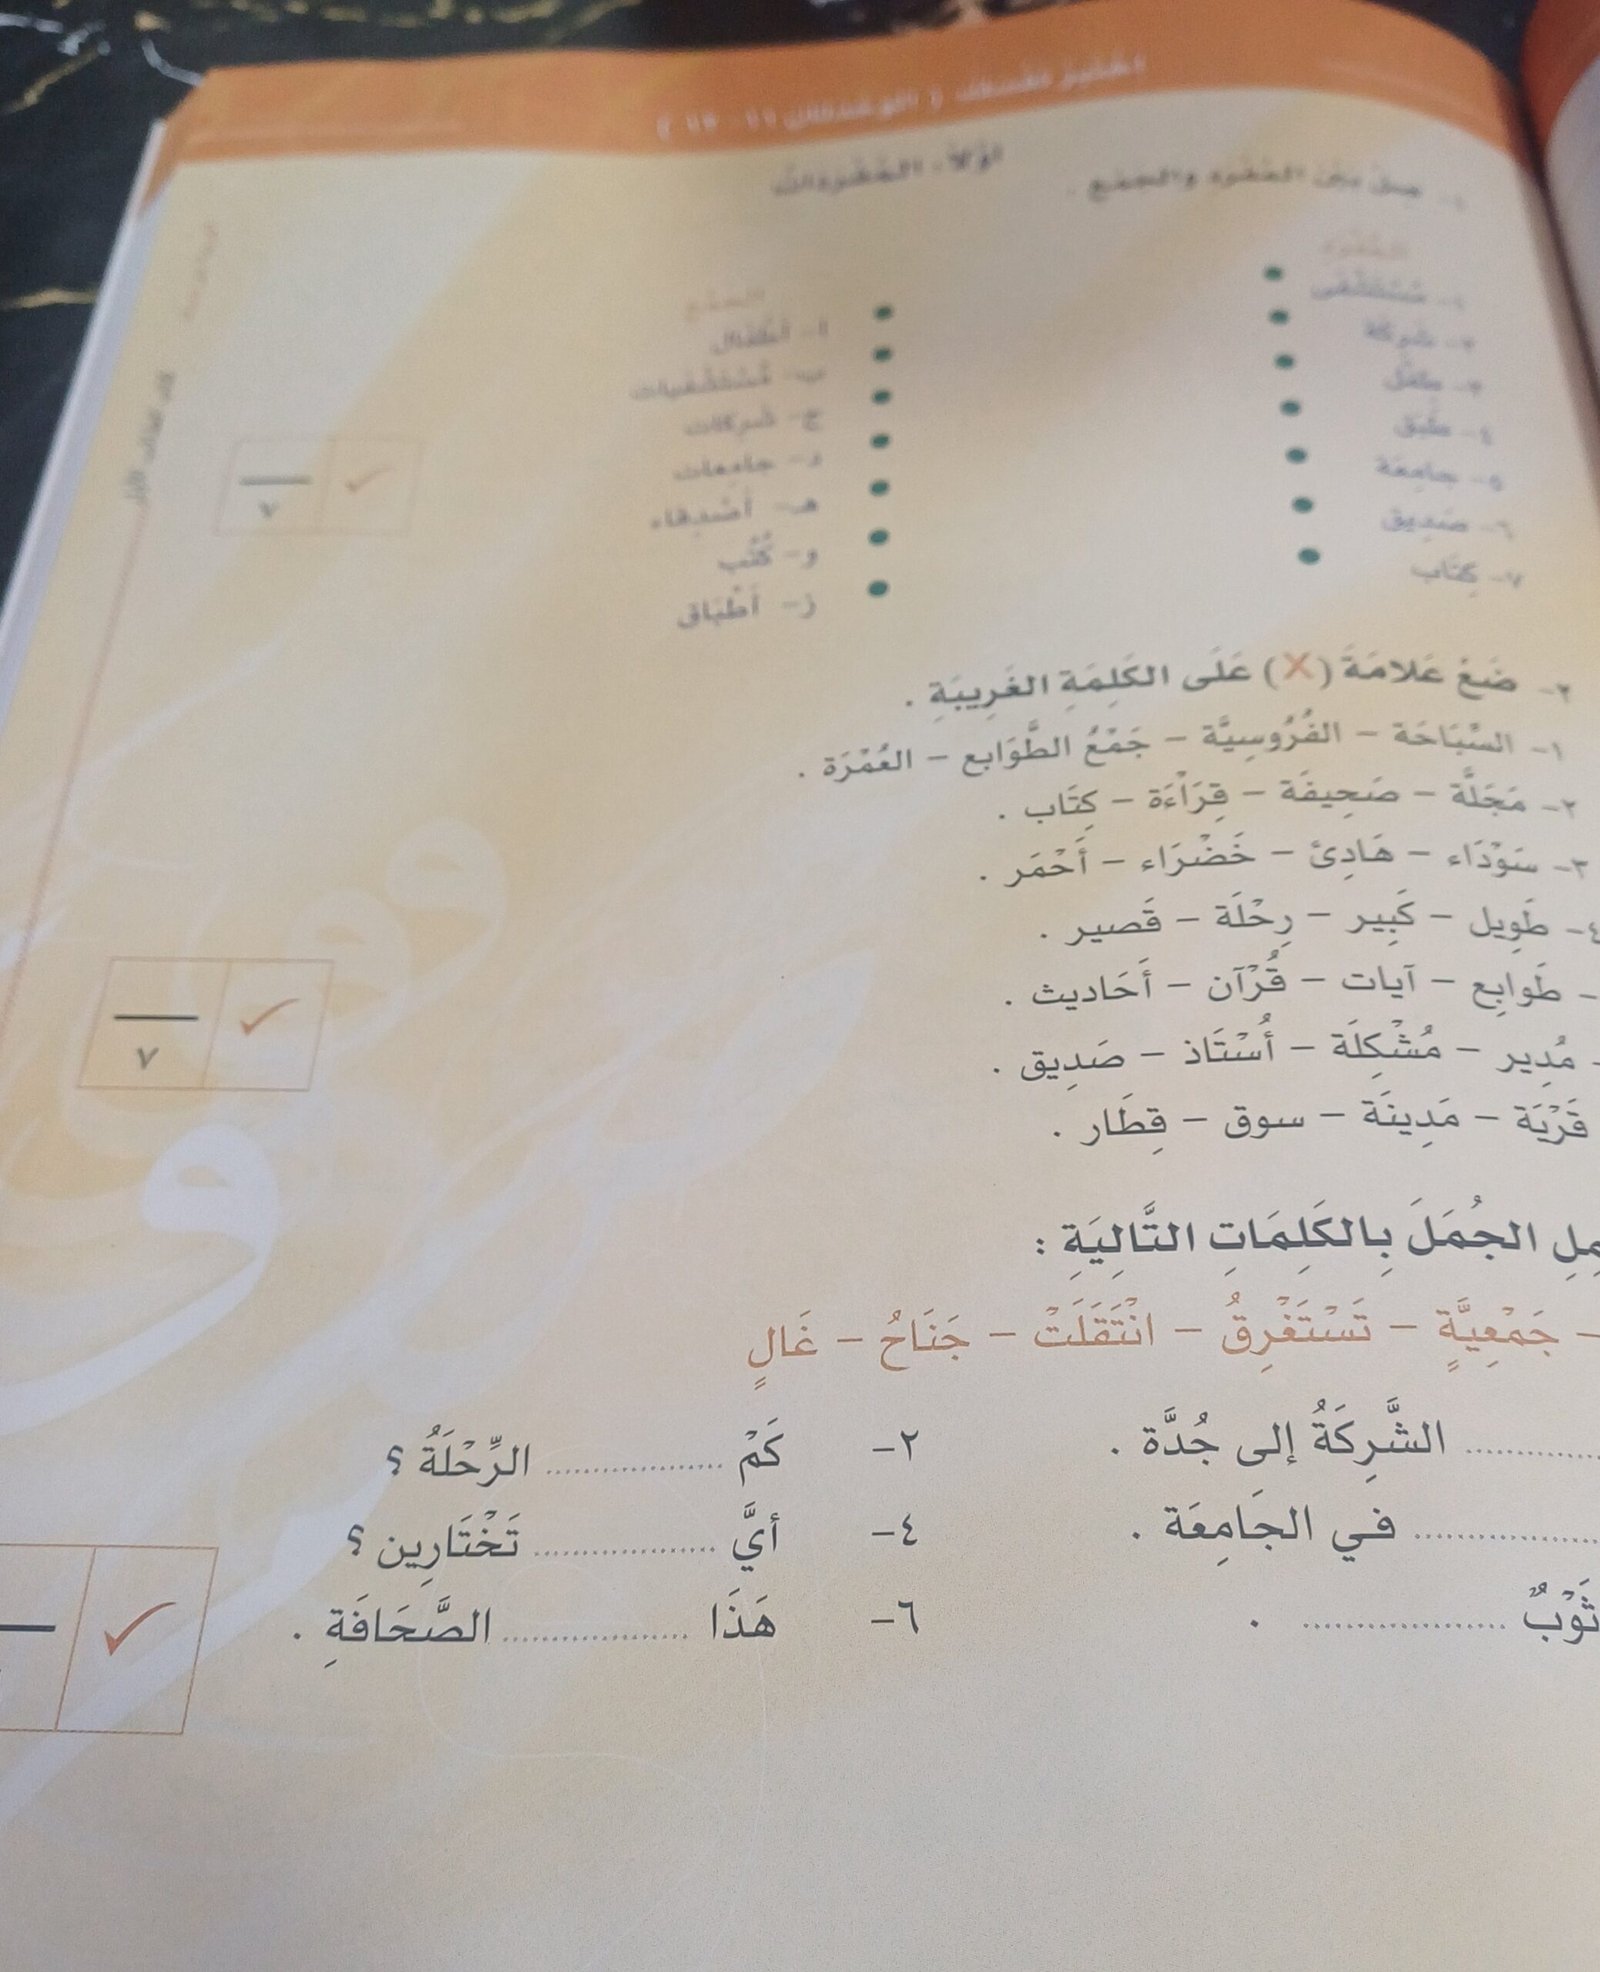 اختبر نفسك ( الوحدتان ١١ - ١٢ )
أولاً- المُفْرَدَات
١- صِلْ بَيْنَ المُفْرَدِ والجَمْعِ .
المُفْرَد
الجَمْع
١- مُسْتَشْفَى
أ- أَطْفَال
٢- شَرِكَة
ب- مُسْتَشْفَيَات
٣- طِفْل
ج- شَرِكَات
٤- طَبَق
د- جَامِعَات
٥- جَامِعَة
هـ- أَصْدِقَاء
٦- صَدِيق
و- كُتُب
٧- كِتَاب
ز- أَطْبَاق
٧
٢- ضَعْ عَلامَةَ (X) عَلَى الكَلِمَةِ الغَرِيبَةِ .
١- السِّبَاحَة - الفُرُوسِيَّة - جَمْعُ الطَّوَابع - العُمْرَة .
٢- مَجَلَّة - صَحِيفَة - قِرَاْءَة - كِتَاب .
٣- سَوْدَاء - هَادِئ - خَضْرَاء - أَحْمَر .
٤- طَوِيل - كَبِير - رِحْلَة - قَصير .
- طَوابِع - آيات - قُرْآن - أَحَاديث .
- مُدِير - مُشْكِلَة - أُسْتَاذ - صَدِيق .
قَرْيَة - مَدِينَة - سوق - قِطَار .
٧
الجُمَلَ بِالكَلِمَاتِ التَّالِيَةِ :
- جَمْعِيَّةٍ - تَسْتَغْرِقُ - انْتَقَلَتْ - جَنَاحُ - غَالٍ
.................. الشَّرِكَةُ إلى جُدَّة .
٢- كَمْ .................. الرِّحْلَةُ ؟
.................. في الجَامِعَة .
٤- أيَّ .................. تَخْتَارِين ؟
ثَوْبٌ .................. .
٦- هَذَا .................. الصَّحَافَةِ .